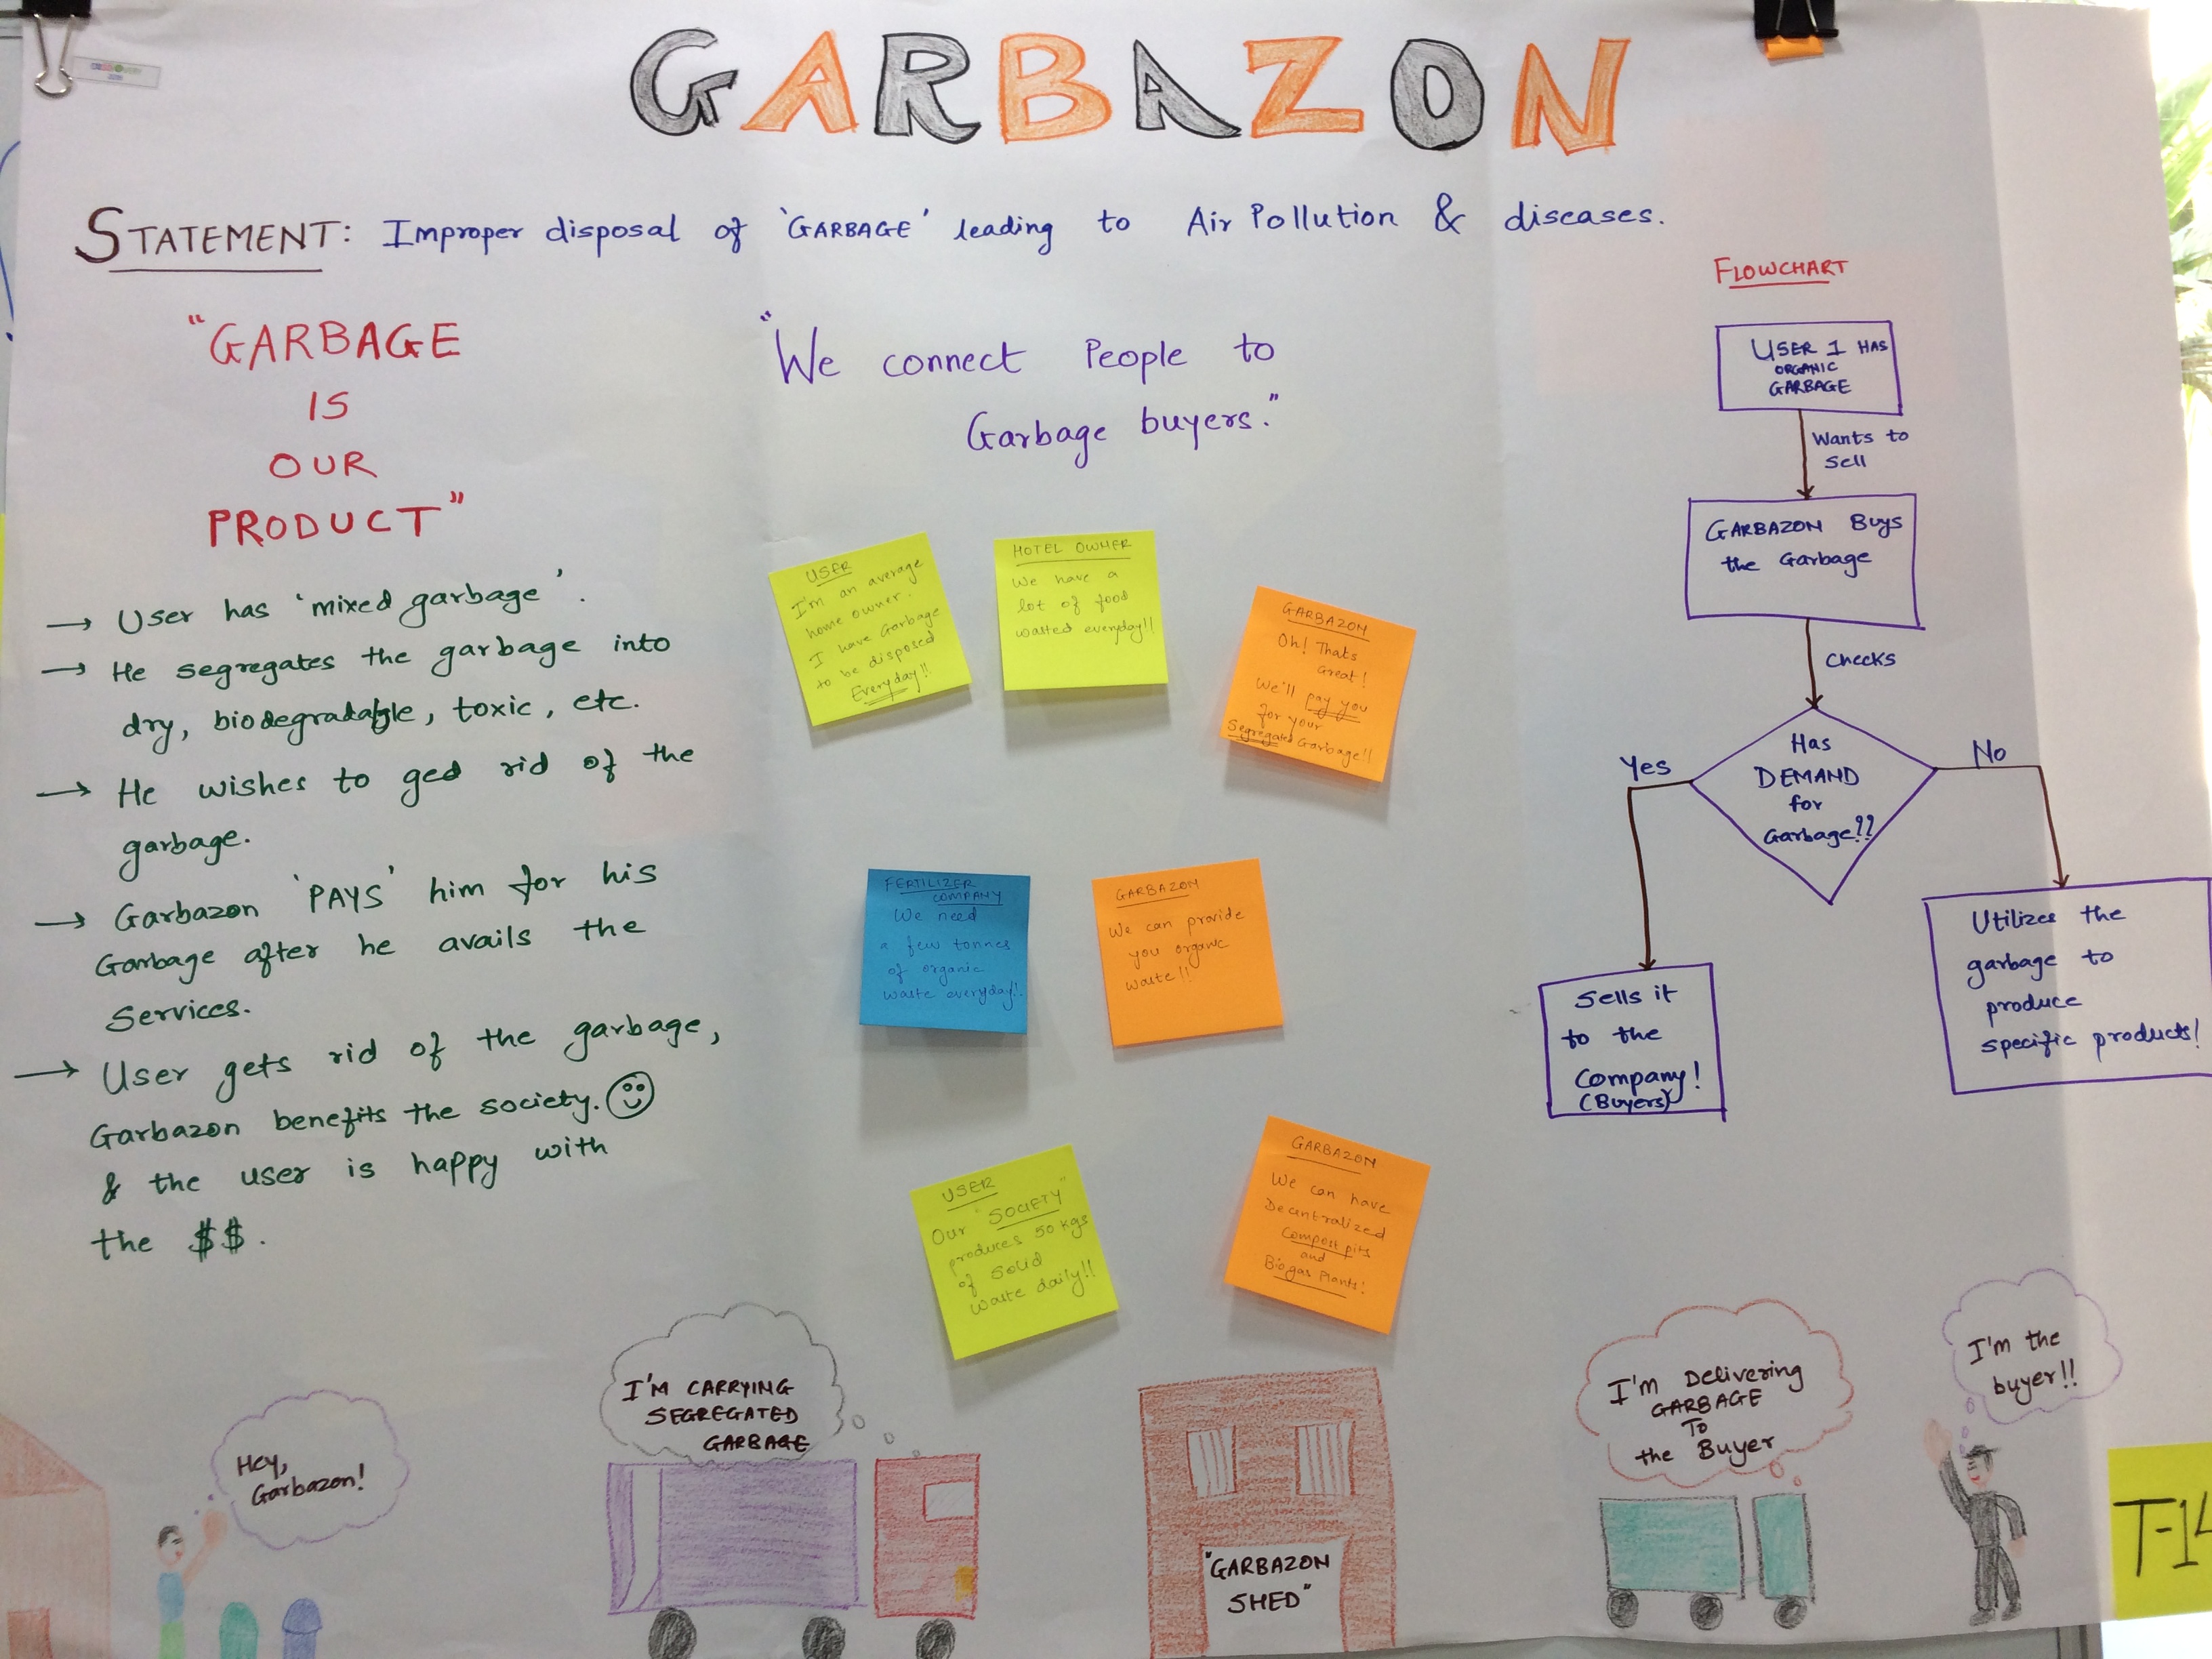 GARBAZON
STATEMENT: Improper disposal of 'GARBAGE' leading to Air Pollution & diseases.
"GARBAGE
IS
OUR
PRODUCT"
→ User has 'mixed garbage'.
→ He segregates the garbage into
dry, biodegradable, toxic, etc.
→ He wishes to ged rid of the
garbage.
→ Garbazon 'PAYS' him for his
Garbage after he avails the
Services.
→ User gets rid of the garbage,
Garbazon benefits the society.
& the user is happy with
the $$.
"We connect People to
Garbage buyers."
USER
I'm an average
home owner.
I have Garbage
to be disposed
Everyday!!
HOTEL OWNER
We have a
lot of food
wasted everyday!!
GARBAZON
Oh! Thats
Great!
We'll pay you
for your
Segregated Garbage!!
FERTILIZER
COMPANY
We need
a few tonnes
of organic
waste everyday!!
GARBAZON
We can provide
you organic
waste!!
USER
Our "SOCIETY"
produces 50 kgs
of solid
waste daily!!
GARBAZON
We can have
Decentralized
Compost pits
and
Biogas Plants!
FLOWCHART
USER 1 HAS
ORGANIC
GARBAGE
Wants to
Sell
GARBAZON Buys
the Garbage
Checks
Has
DEMAND
for
Garbage??
Yes
No
Sells it
to the
Company!
(Buyers)
Utilizes the
garbage to
produce
specific products!
Hey,
Garbazon!
I'M CARRYING
SEGREGATED
GARBAGE
"GARBAZON
SHED"
I'm Delivering
GARBAGE
TO
the Buyer
I'm the
buyer!!